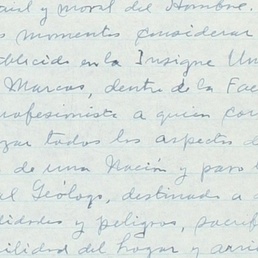 y moral del Hombre.
momentos considerar
en la Insigne Un
Marcos, dentro de la Fac
profesionista a quien co
todos los aspectos d
de una Nación y para l
al Geólogo, destinado a
y peligros, sacrif
del hogar y